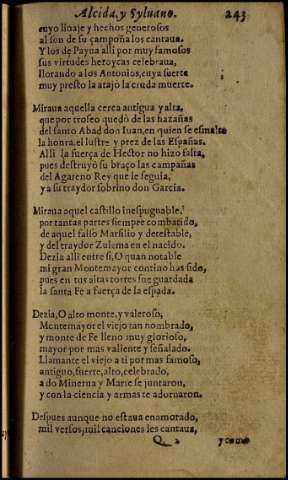 Alcida, y Syluano. 243
cuyo linaje y hechos generosos
al son de su çampoña los cantaua.
Y los de Payua alli por muy famosos
sus virtudes heroycas celebraua,
llorando a los Antonios, cuya suerte
muy presto la atajò la cruda muerte.
Miraua aquella cerca antigua y alta,
que por trofeo quedò de las hazañas
del santo Abad don Iuan, en quien se esmalta
la honra, el lustre y prez de las Españas.
Alli la fuerça de Hector no hizo falta,
pues destruyò su braço las campañas
del Agareno Rey que le seguia,
y a su traydor sobrino don Garcia.
Miraua aquel castillo inespugnable,
por tantas partes siempre combatido,
de aquel falso Marsilio y detestable,
y del traydor Zulema en el nacido.
Dezia alli entre si, O quan notable
mi gran Montemayor contino has sido,
pues en tus altas torres fue guardada
la santa Fe a fuerça de la espada.
Dezia, O alto monte, y valeroso,
Montemayor el viejo tan nombrado,
y monte de Fe lleno muy glorioso,
mayor por mas valiente y señalado.
Llamante el viejo a ti por mas famoso,
antiguo, fuerte, alto, celebrado,
a do Minerua y Marte se juntaron,
y con la ciencia y armas te adornaron.
Despues aunque no estaua enamorado,
mil versos, mil canciones les cantaua,
Q 2 y como